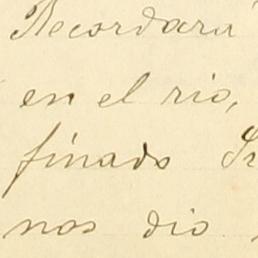 Recordará
en el rio,
finado
nos dio